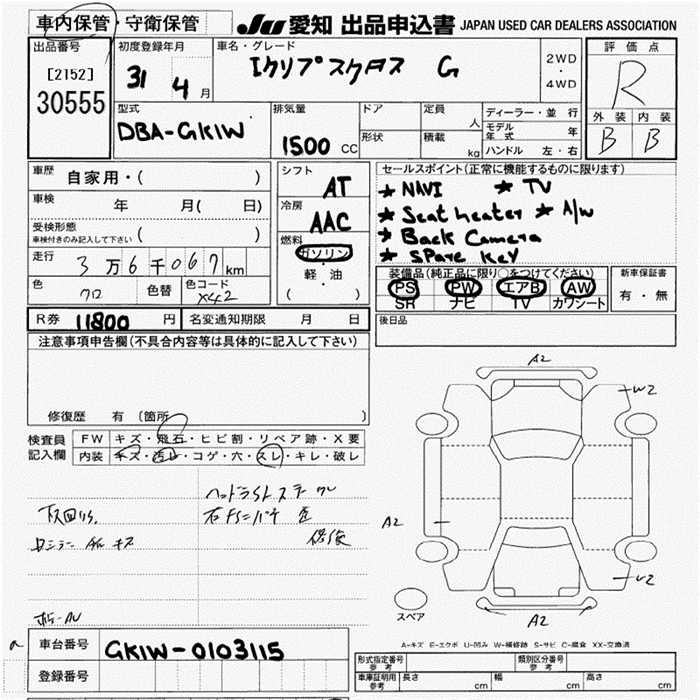 車内保管・守衛保管 JU 愛知 出品申込書 JAPAN USED CAR DEALERS ASSOCIATION
出品番号 初度登録年月 車名・グレード 評価点
[2152] 31 4月 エクリプスクロス G 2WD・4WD R
30555
型式 排気量 ドア 定員 人 ディーラー・並行 外装 内装
DBA-GK1W 1500 CC 形状 積載 kg モデル年式 年 B B
ハンドル 左・右
車歴 自家用・( ) シフト AT セールスポイント(正常に機能するものに限ります)
車検 年 月( 日) 冷房 AAC ★ NAVI ★ TV
受検形態 ( ) ★ Seat heater ★ A/W
車検付きのみ記入して下さい 燃料 ガソリン ★ Back Camera
走行 3万6千067km 軽・油 ★ Spare key
色 クロ 色替 色コード X42 ( )
装備品(純正品に限り○をつけてください) 新車保証書
PS PW エアB AW 有・無
SR ナビ TV カワシート
R券 11800 円 名変通知期限 月 日 後日品
注意事項申告欄(不具合内容等は具体的に記入して下さい)
修復歴 有 (箇所 )
検査員記入欄 FW キズ・飛石・ヒビ割・リペア跡・X要
内装 キズ・汚レ・コゲ・穴・スレ・キレ・破レ
ヘッドライトステー
下回り
キズ
A2
W2
A2
W2
A2
スペア
A-キズ E-エクボ U-凹み W-補修跡 S-サビ C-腐食 XX-交換済
車台番号 GK1W-0103115
登録番号
形式指定番号 参考 類別区分番号 参考
車庫証明用 参考 長さ cm 幅 cm 高さ cm